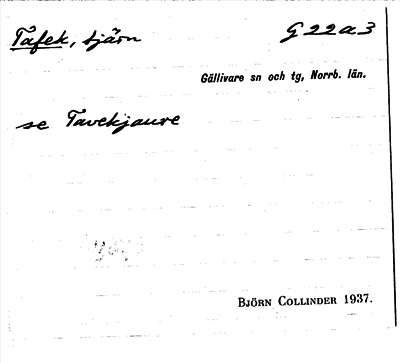 Tåfek, tjärn G 22 a 3
Gällivare sn och tg, Norrb. län.
se Tavekjaure
BJÖRN COLLINDER 1937.